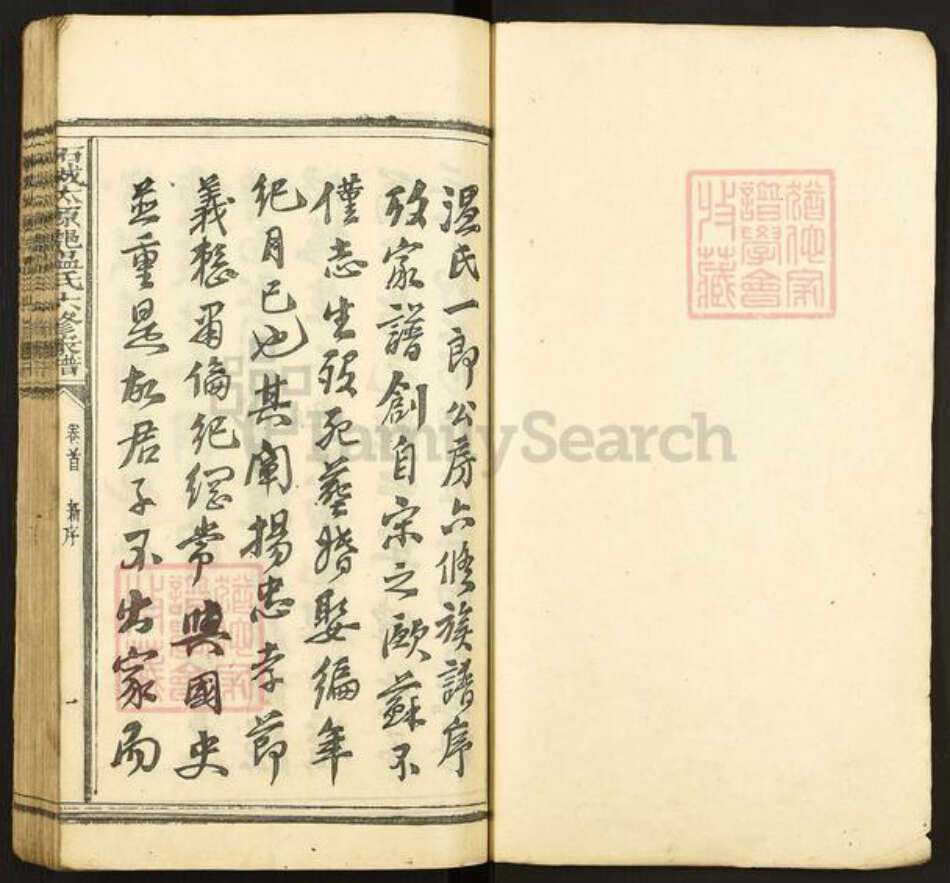 猶他家
譜學會
收藏
溫氏一郎公房六修族譜序
攷家譜創自宋之歐蘇不
僅志生殁死葬婚娶編年
紀月已也其闡揚忠孝節
義整肅倫紀綱常與國史
並重是故君子不出家而
石城太原郡溫氏六修家譜
卷首 新序
一
猶他家
譜學會
收藏
FamilySearch